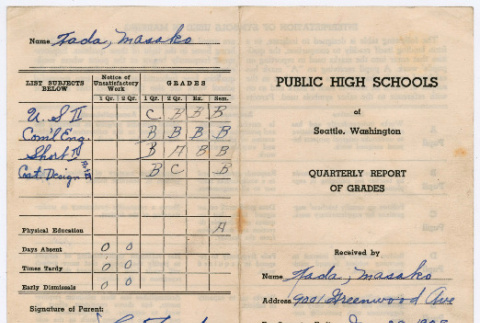 Name Tada, Masako
LIST SUBJECTS BELOW
Notice of Unsatisfactory Work
GRADES
1 Qr. 2 Qr. 1 Qr. 2 Qr. Ex. Sem.
U. S II C B B B
Com'l Eng. B B B B
Short IV B A B B
Cost. Design B C B
Physical Education A
Days Absent 0 0
Times Tardy 0 0
Early Dismissals 0 0
Signature of Parent:
PUBLIC HIGH SCHOOLS
of
Seattle, Washington
QUARTERLY REPORT
OF GRADES
Received by
Name Tada, Masako
Address 9201 Greenwood Ave